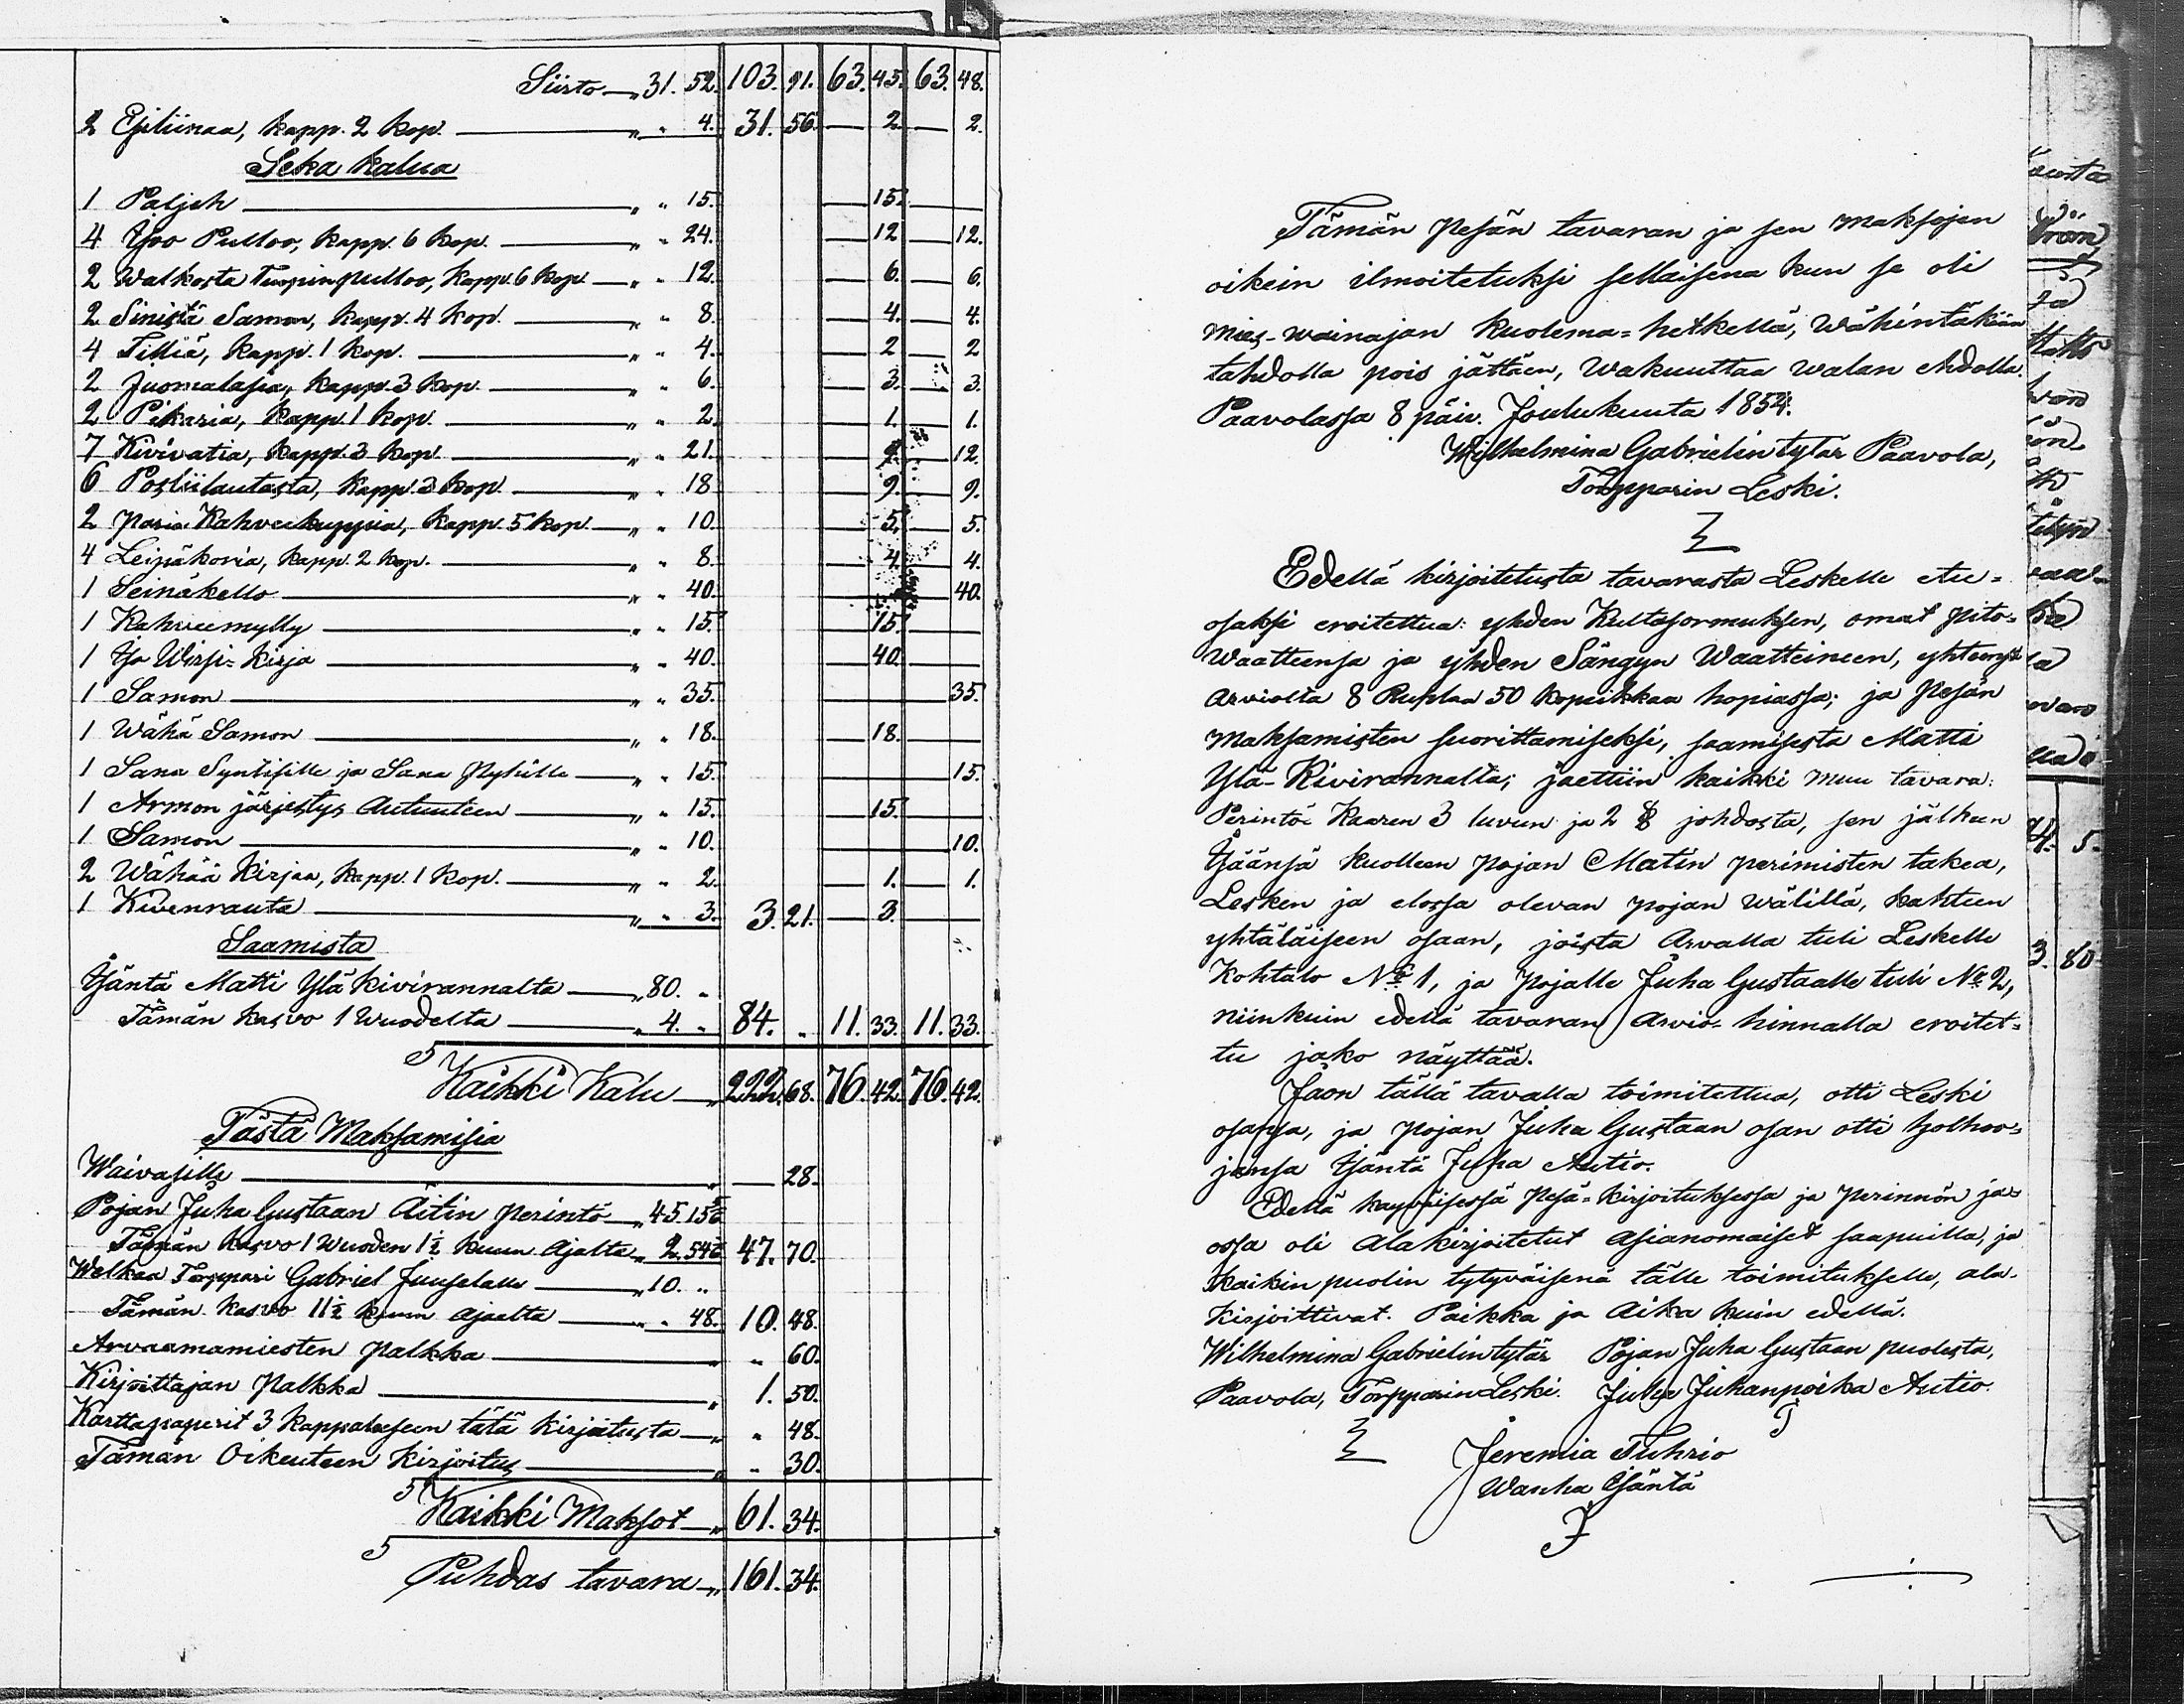 Siirto „ 31. 52. 103. 91. 63. 45. 63. 48.
2 Esiliinaa, kapp. 2 kop. „ „ 4. 31. 56. — 2. — 2.
Seka kalua
1 Paljeh „ „ 15. — 15. —
4 Yoo Pulloo, kapp. 6 kop. „ „ 24. — 12 — 12.
2 Walkosta Tuopinpulloo, kapp. 6 kop. „ „ 12. — 6. — 6.
2 Sinistä Samon, kapp. 4 kop. „ „ 8. — 4. — 4.
4 Tilliä, kapp. 1 kop. „ „ 4. — 2 — 2
2 Juomalasia, kapp. 3 kop. „ „ 6. — 3. — 3.
2 Pikaria, kapp. 1 kop. „ „ 2. — 1. — 1.
7 Kivivatia, kapp. 3 kop. „ „ 21. — 9. — 12.
6 Posliilautasta, kapp. 3 kop. „ „ 18 — 9. — 9.
2 paria Kahveekuppia, kapp. 5 kop. „ „ 10. — 5. — 5.
4 Leipäkoria, kapp. 2 kop. „ „ 8. — 4. — 4.
1 Seinäkello „ „ 40. — 40.
1 Kahveemylly „ „ 15. — 15. —
1 Iso Wirsi-Kirja „ „ 40. — 40. —
1 Samon „ „ 35. — 35.
1 Wähä Samon „ „ 18. — 18. —
1 Sana Syntisille ja Sana Pyhille „ „ 15. — 15.
1 Armon järjestys Autuuteen „ „ 15. — 15. —
1 Samon „ „ 10. — 10.
2 Wähää Kirjaa, kapp. 1 kop. „ „ 2. — 1. — 1.
1 Kivenrauta „ „ 3. 3. 21. — 3. —
Saamista
Isäntä Matti Yläkivirannalta „ 80. „
Tämän kasvo 1 Wuodelta „ 4. „ 84. „ 11. 33. 11. 33.
Kaikki Kalu „ 222. 68. 76. 42. 76. 42.
Tästä Maksamisia
Waivasille „ — 28.
Pojan Juha Gustaan Äitin perintö „ 45. 15
Tämän kasvo 1 Wuoden 1½ kuun Ajalta „ 2. 54 47. 70.
Welkaa Torppari Gabriel Juuselalle „ 10. „
Tämän kasvo 11½ kuun ajalta „ „ 48. 10. 48.
Arvaamamiesten palkka „ „ 60.
Kirjoittajan palkka „ 1. 50.
Karttapaperit 3 kappaleeseen tätä kirjoitusta „ „ 48.
Tämän Oikeuteen Kirjoitus „ „ 30.
Kaikki Maksot „ 61. 34.
Puhdas tavara „ 161. 34.
Tämän Pesän tavaran ja sen maksojen
oikein ilmoitetuksi sellaisena kun se oli
mies-wainajan Kuolema-hetkellä, Wähintäkään
tahdolla pois jättäen, Wakuuttaa walan ehdolla.
Paavolassa 8 päiv. Joulukuuta 1854.
Wilhelmina Gabrielintytär Paavola,
Torpparin Leski.
Edellä kirjoitetusta tavarasta Leskelle etu-
osaksi eroitettua: yhden Kultasormuksen, omat pito-
Waatteensa ja yhden Sängyn Waatteineen, yhteensä
Arviolta 8 Ruplaa 50 kopeikkaa hopiassa; ja Pesän
Maksamisten suorittamiseksi, saamisesta Matti
Ylä-Kivirannalta; jaettiin kaikki muu tavara:
Perintö Kaaren 3 luvun ja 2 § johdosta, sen jälkeen
Isäänsä kuolleen pojan Matin perimisten takea,
Lesken ja elossa olevan pojan wälillä, kahteen
yhtäläiseen osaan, joista Arvalla tuli Leskelle
Kohtalo No 1, ja Pojalle Juha Gustaalle tuli No 2,
niinkuin edellä tavaran Arvio-hinnalla eroitet-
tu jako näyttää.
Jaon tällä tavalla toimitettua, otti Leski
osansa, ja pojan Juha Gustaan osan otti holhoo-
jansa Isäntä Juha Autio.
Edellä kayväisessä pesä-kirjoituksessa ja perinnön ja-
ossa oli Alakirjoitetut Asianomaiset saapuilla, ja
Kaikin puolin tytyväisenä tälle toimitukselle, ala-
Kirjoittivat. Paikka ja Aika kuin edellä.
Wilhelmina Gabrielintytär Pojan Juha Gustaan puolesta,
Paavola, Torpparin Leski. Juha Juhanpoika Autio.
Jeremia Tuhrio
Wanha Isäntä